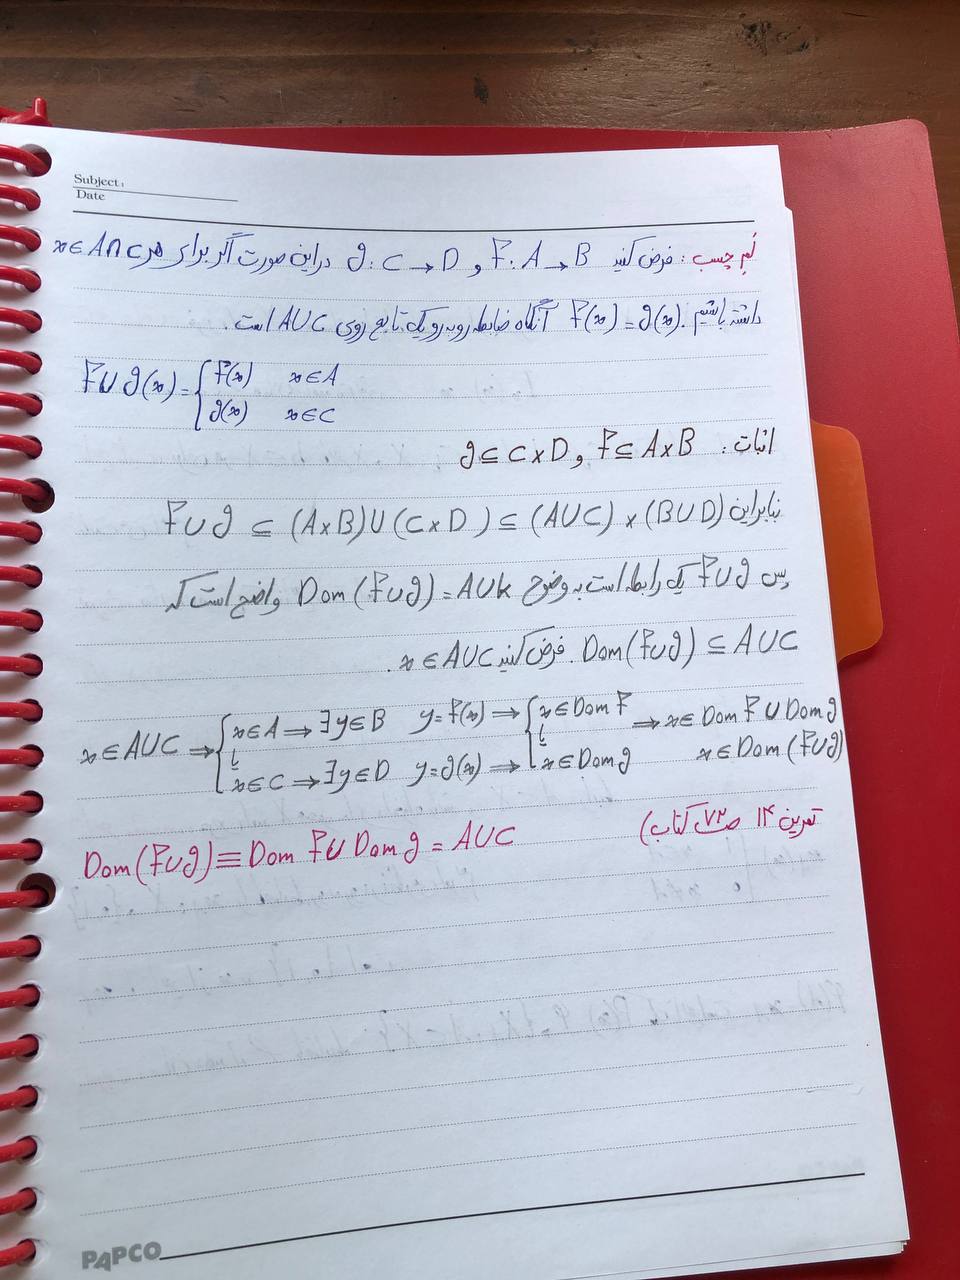 Subject:
Date
لم چسب: فرض کنید F: A → B و g: C → D در این صورت اگر برای هر x ∈ A∩C
داشته باشیم F(x) = g(x). آنگاه ضابطه روبه‌رو یک تابع روی A∪C است.
F∪g(x) = { F(x) x ∈ A
g(x) x ∈ C
اثبات: F ⊆ A×B و g ⊆ C×D
بنابراین F∪g ⊆ (A×B)∪(C×D) ⊆ (A∪C)×(B∪D)
پس F∪g یک رابطه است به وضوح Dom(F∪g) = A∪k واضح است که
Dom(F∪g) ⊆ A∪C. فرض کنید x ∈ A∪C.
x ∈ A∪C ⇒ { x ∈ A → ∃y ∈ B y = F(x) ⇒ { x ∈ Dom F ⇒ x ∈ Dom F ∪ Dom g
یا یا
x ∈ C → ∃y ∈ D y = g(x) ⇒ x ∈ Dom g x ∈ Dom(F∪g)
تمرین ۱۴ صـ ۷۲ کتاب)
Dom(F∪g) ≡ Dom F ∪ Dom g = A∪C
PAPCO